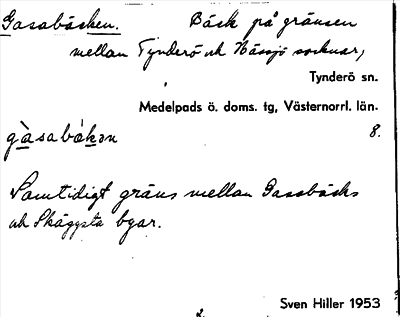 Gasabäcken. Bäck på gränsen
mellan Tynderö och Hässjö socknar,
Tynderö sn.
Medelpads ö. doms. tg, Västernorrl. län.
gàsabäkən 8.
Samtidigt gräns mellan Gasabäcks
och Skäggsta byar.
Sven Hiller 1953